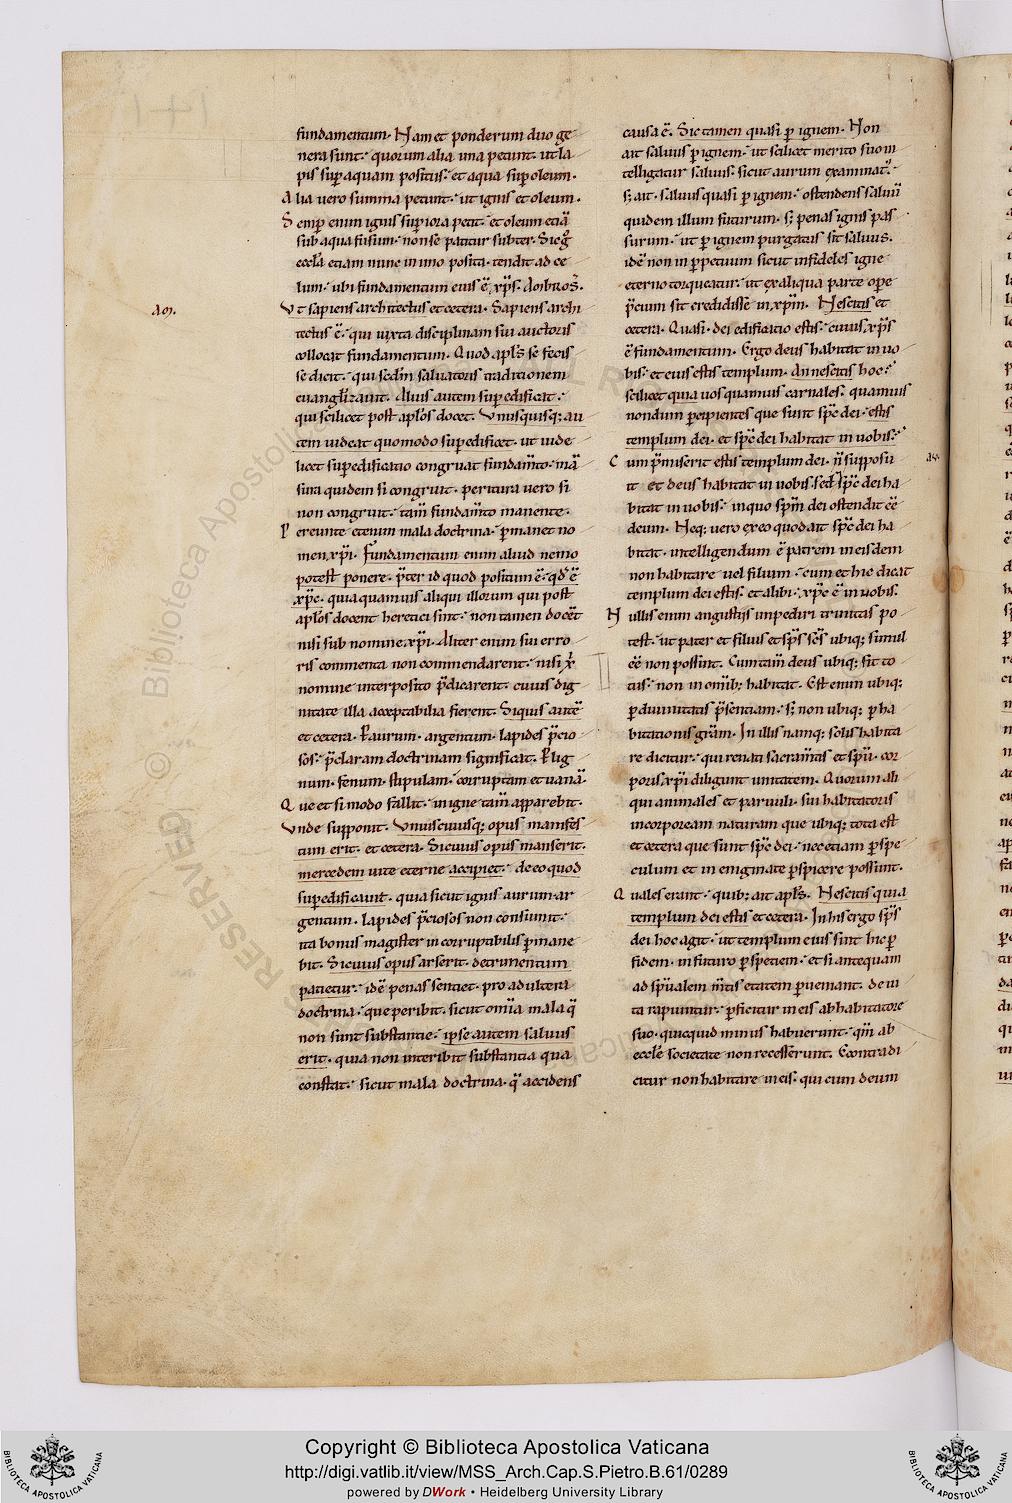 fundamentum. Nam et ponderum duo ge
nera sunt. quorum alia una petunt. ut la
pis sup̄ aquam positus. et aqua sup̄ oleum.
Alia uero summa petunt. ut ignis et oleum.
Semp̄ enim ignis sup̄iora petit. et oleum etiā
sub aqua fusum. non se patitur subter. Sic g̊
eccl̄a etiam nunc in imo posita. tendit ad ce
lum. ubi fundamentum eius ē xp̄s. Ambrios̄.
Vt sapiens architectus et cetera. Sapiens archi
am̄.
tectus ē. qui iuxta disciplinam sui auctoris
collocat fundamentum. Quod apl̄s se fecis
se dicit. qui scd̄m saluatoris traditionem
euangl̄izauit. Alius autem sup̄edificat.
qui scilicet post apl̄os docet. Vnusquisq; au
tem uideat quomodo sup̄edificet. ut uide
licet sup̄edificatio congruat fundam̄to. mā
sura quidem si congruit. peritura uero si
non congruit. tam̄ fundam̄to manente.
Pereunte etenim mala doctrina. p̄manet no
men xp̄i. Fundamentum enim aliud nemo
potest ponere. p̄ter id quod positum ē. qd̄ ē
xp̄c. quia quamuis aliqui illorum qui post
apl̄os docent heretici sint. non tamen docēt
nisi sub nomine xp̄i. Aliter enim sui erro
ris commenta non commendarent. nisi x̄
nomine interposito p̄dicarent. cuius dig
nitate illa acceptabilia fierent. Siquis autē
et cetera. P̄ aurum. argentum. lapides p̄cio
sos. p̄claram doctrinam significat. P̄ lig
num. fenum. stipulam. corruptam et uanā.
Que et si modo fallit. in igne tam̄ apparebit.
Vnde supponit. Vniuscuiusq; opus manifes
tum erit. et cetera. Si cuius opus manserit.
mercedem uite eterne accipiet. de eo quod
sup̄edificauit. quia sicut ignis aurum. ar
gentum. lapides p̄ciosos non consumit.
ita bonus magister incorruptibilis p̄mane
bit. Si cuius opus arserit. detrimentum
patietur. idē penas sentiet. pro adultera
doctrina. que peribit. sicut om̄ia mala q̄
non sunt substantie. ipse autem saluus
erit. quia non interibit substantia qua
constat. sicut mala doctrina. q̄ accidens
causa ē. Sic tamen quasi p̄ ignem. Non
ait saluus p̄ ignem. ut scilicet merito suo in
telligatur saluus. sicut aurum examinat᷑.
s; ait. saluus quasi p̄ ignem. ostendens saluū
quidem illum futurum. s; penas ignis pas
surum. ut p̄ ignem purgatus sit saluus.
idē non in p̄petuum sicut infideles igne
eterno torqueatur. ut ex aliqua parte ope
p̄cium sit credidisse in xp̄m. Nescitis et
cetera. Quasi. dei edificatio estis. cuius xp̄s
ē fundamentum. Ergo deus habitat in uo
bis. et eius estis templum. An nescitis hoc.
scilicet quia uos quamuis carnales. quamuis
nondum percipientes que sunt sp̄c dei. estis
templum dei. et sp̄c dei habitat in uobis.
Cum p̄miserit estis templum dei. n̄ supposu
it et deus habitat in uobis. sed sp̄c dei ha
bitat in uobis. in quo sp̄m dei ostendit eē
deum. Neq; uero ex eo quod ait sp̄c dei ha
bitat. intelligendum ē patrem in eisdem
non habitare uel filium. cum et hic dicat
templum dei estis. et alibi. xp̄c ē in uobis.
Nullis enim angustijs impediri trinitas po
test. ut pater et filius et sp̄s sc̄s ubiq; simul
eē non possint. Cum tam̄ deus ubiq; sit to
tus. non in om̄ib; habitat. Est enim ubiq;
p̄ diuinitatis p̄sentiam. s; non ubiq; p̄ ha
bitationis gr̄am. In illis namq; solis habita
re dicitur. qui renati sacram̄tis et sp̄u. cor
poris xp̄i diligunt unitatem. Quorum ali
qui animales et paruuli. sui habitatoris
incorpoream naturam que ubiq; tota est
et cetera que sunt sp̄c dei. nec etiam p̄ spe
culum et in enigmate p̄spicere possunt.
Quales erant. quib; ait apl̄s. Nescitis quia
templum dei estis et cetera. In his ergo sp̄s
dei hoc agit. ut templum eius sint hic p̄
fidem. in futuro p̄ speciem. et si antequam
ad sp̄ualem m̄tis etatem p̄ueniant. de ui
ta rapiuntur. p̄ficitur in eis ab habitatore
suo. quicquid minus habuerint. qm̄ ab
eccl̄e societate non recesserunt. Econtra di
citur non habitare in eis. qui cum deum
Copyright © Biblioteca Apostolica Vaticana
http://digi.vatlib.it/view/MSS_Arch.Cap.S.Pietro.B.61/0289
powered by DWork • Heidelberg University Library